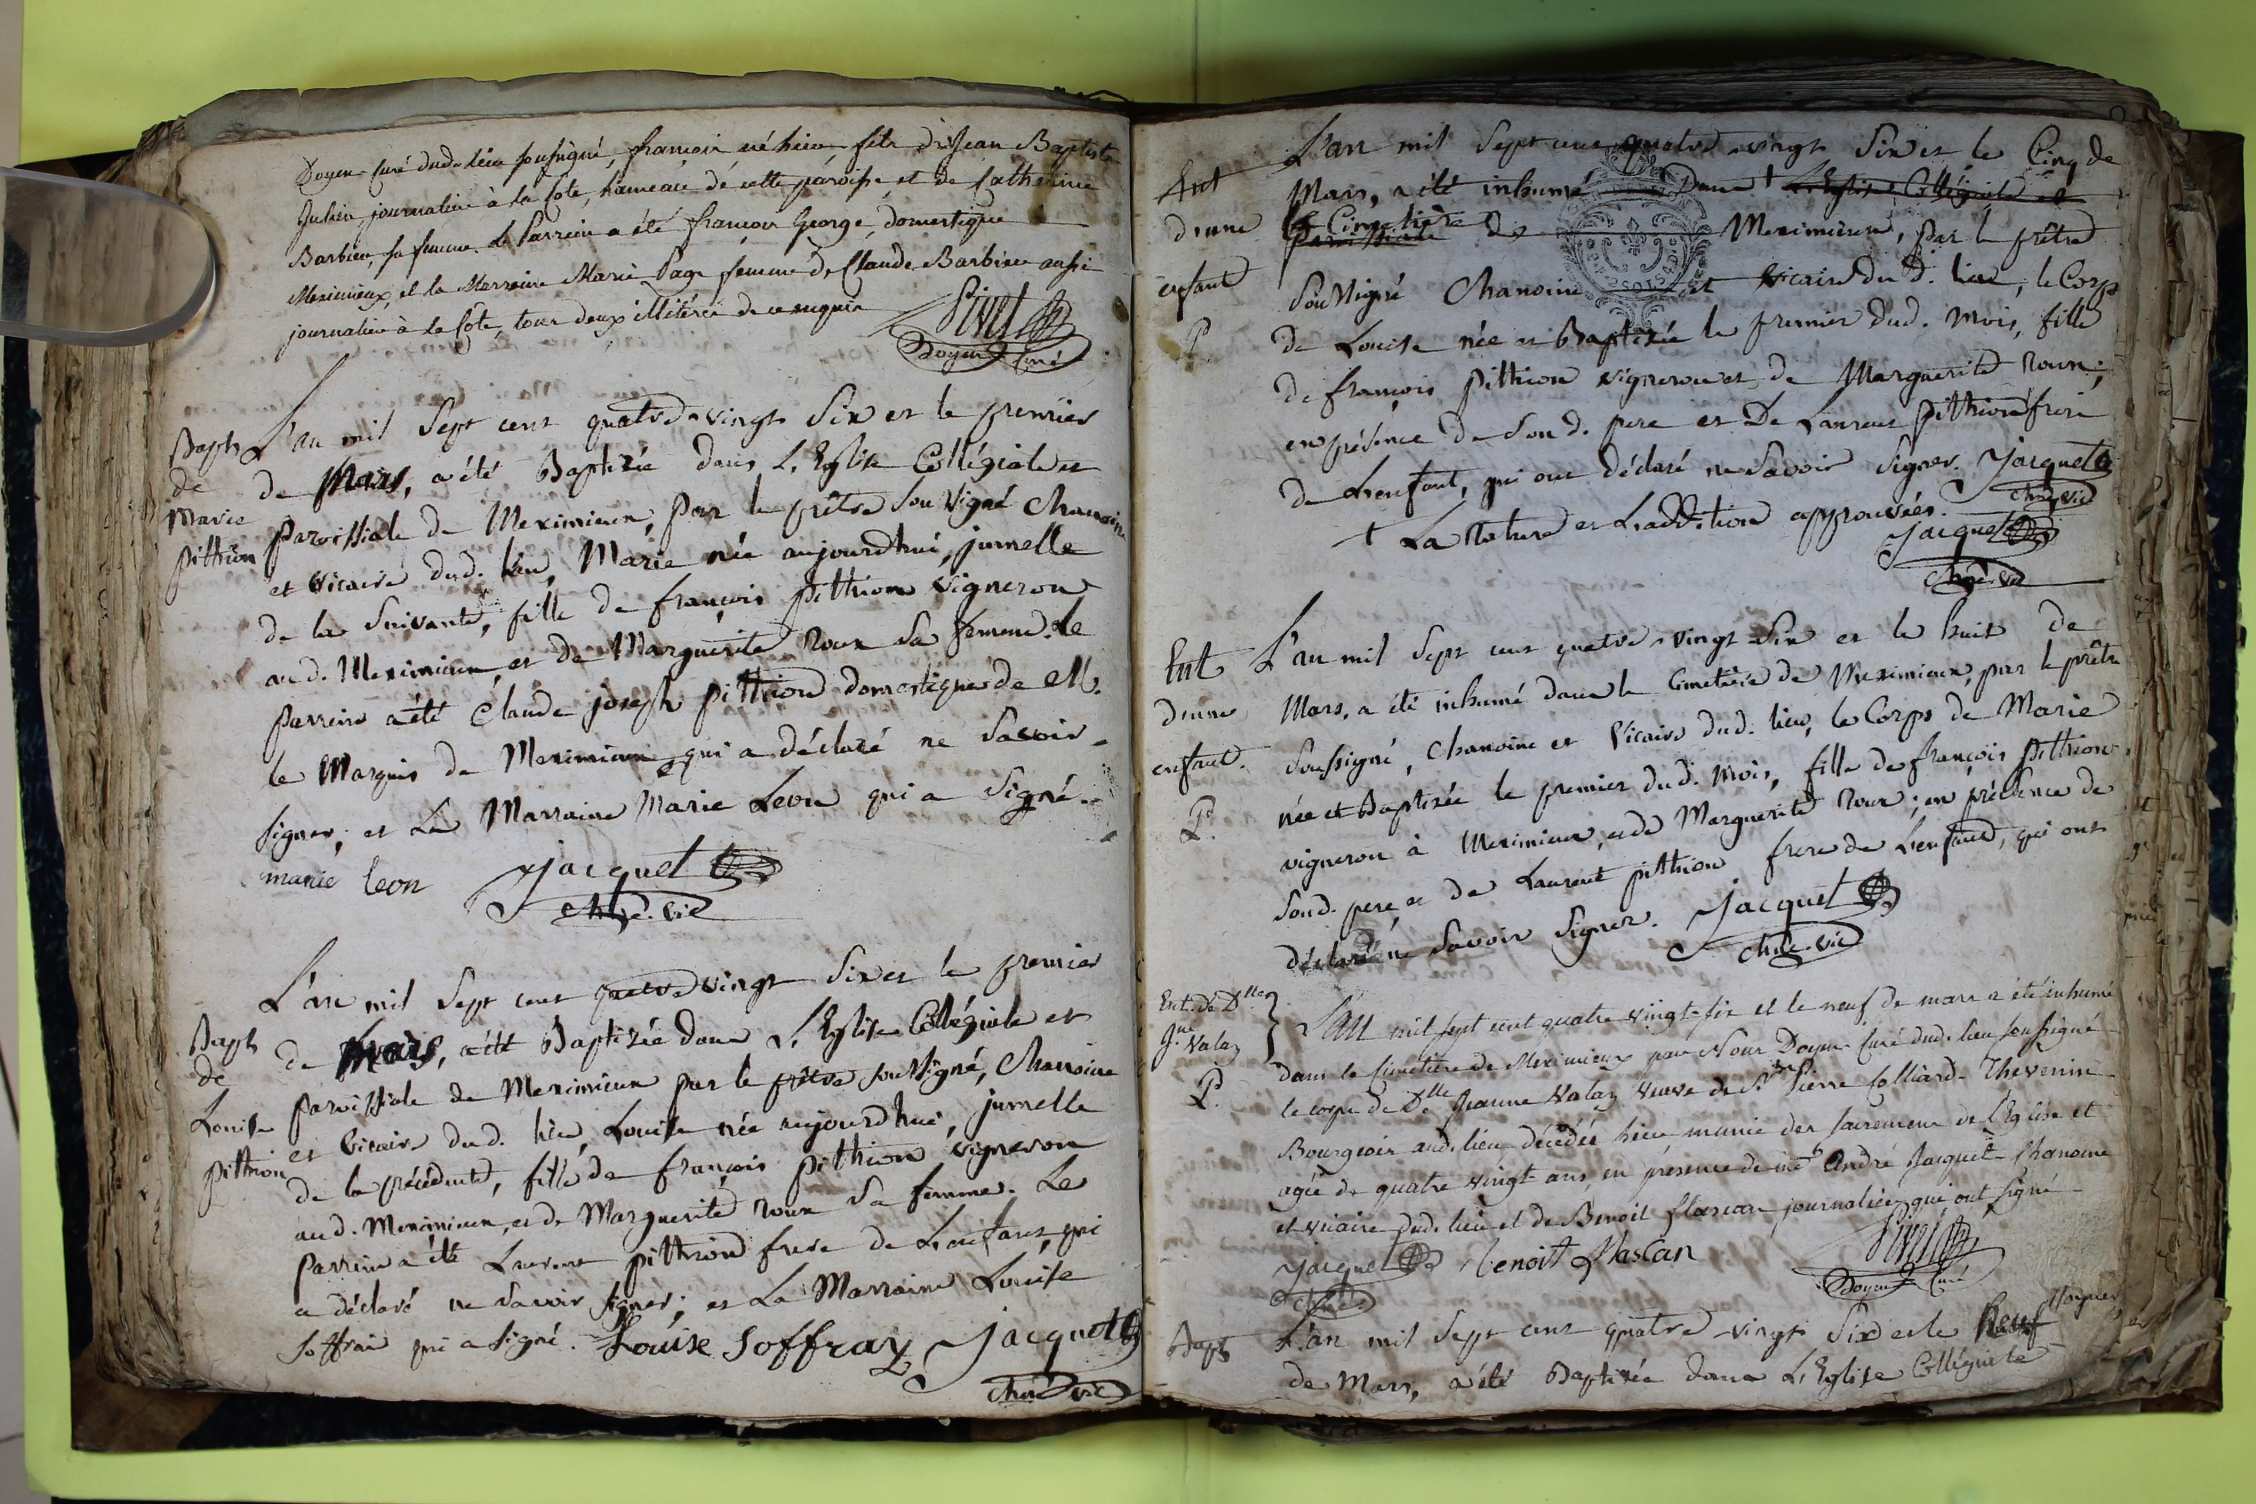 Doyen curé dud. lieu soussigné, françois né hier fils de Jean Baptiste
Julien journalier à la Cote, hameau de cette paroisse et de Catherine
Barbier, sa femme. Le Parrein a été françois George, domestique
Meximieux, et la Marreine Marie Page femme de Claude Barbier aussi
journalier à la Cote, tous deux illitérés de ce enquis
Pivet
Doyen Curé
Bapt
de
Marie
pitthion
L'an mil Sept cent quatre-vingt Six et le premier
de Mars, a été Baptizée dans L'Eglise Collégiale et
paroissiale de Meximieux, par le prêtre Soussigné Chanoine
et Vicaire dud. lieu, Marie née aujourdhui, jumelle
de la Suivante, fille de françois pitthion vigneron
aud. Meximieux, et de Marguerite Roux Sa femme. Le
parrein a été Claude joseph pitthion domestique de M.
le Marquis de Meximieux qui a déclaré ne Savoir
signer; et La Marraine Marie Leon qui a Signé.
marie leon
Jacquet
chne. vic
Bapt
de
Louise
pitthion
L'an mil Sept cent quatre vingt Six et le premier
de Mars, a été Baptizée dans L'Eglise Collégiale et
paroissiale de Meximieux par le prêtre soussigné, Chanoine
et Vicaire dud. lieu, Louise née aujourdhui, jumelle
de la précédente, fille de françois pitthion vigneron
aud. Meximieux, et de Marguerite roux Sa femme. Le
Parrein a été Laurent pitthion frere de L'enfant, qui
a déclaré ne Savoir signer; et La Marraine Louise
Soffrai qui a signé. Louise Soffray Jacquet
chne vic
Ent
d'une
enfant
P.
L'an mil Sept cent quatre-vingt Six et le Cinq de
Mars, a été inhumé Dans † L'Eglise Collégiale et
le Cimetière
paroissiale de Meximieux, par le prêtre
Soussigné Chanoine et Vicaire du d. lieu, le Corps
de Louise née et Baptizée le premier dud. mois, fille
de françois pitthion vigneron et de Marguerite Roux;
en présence de Sond. pere et De Laurent pitthion frere
de L'enfant, qui ont déclaré ne Savoir signer. Jacquet
chne. vic
† La Rature et L'addition approuvées.
Jacquet
chne. vic
Ent
d'une
enfant.
P.
L'an mil Sept cent quatre-vingt Six et le huit de
Mars, a été inhumé dans le Cimetière de Meximieux, par le prêtre
Soussigné, Chanoine et Vicaire dud. lieu, le Corps de Marie
née et Baptizée le premier dud. mois, fille de françois pitthion
vigneron à Meximieux, et de Marguerite Roux; en présence de
Sond. pere, et de Laurent pitthion frere de L'enfant, qui ont
déclaré ne Savoir Signer. Jacquet
chne. vic
Ent. de Dlle
Jne Valaz
P.
L'an mil sept cent quatre vingt-six et le neuf de mars a été inhumé
dans le cimetière de Meximieux par Nous Doyen curé dud. lieu soussigné
le corps de Dlle Jeanne Valaz veuve de Sr Pierre Colliard Thevenin
Bourgeois aud. lieu décédée hier munie des sacremens de l'Eglise et
agée de quatre vingt ans, en présence de mre André Jacquet Chanoine
et vicaire dud. lieu et de Benoit Flascan journalier, qui ont signé
Jacquet
chne
benoit flascan
Pivet
Doyen Curé
Bapt
L'an mil Sept cent quatre-vingt Six et le neuf
de Mars, a été Baptizée dans L'Eglise Collégiale